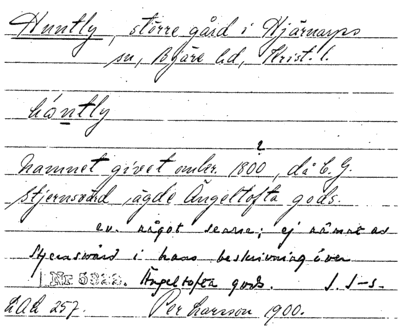 Huntly, större gård i Hjärnarps
sn, Bjäre hd, Krist. l.
hóntly
Namnet givet omkr. 1800?, då C. G.
Stjernsvärd ägde Ängeltofta gods.
ev. något senare; ej nämnt av
Stjernsvärd i hans beskrivning över
Nr 5322. Ängeltofta gods. J. S-s.
LAL 257. Per Larsson 1900.